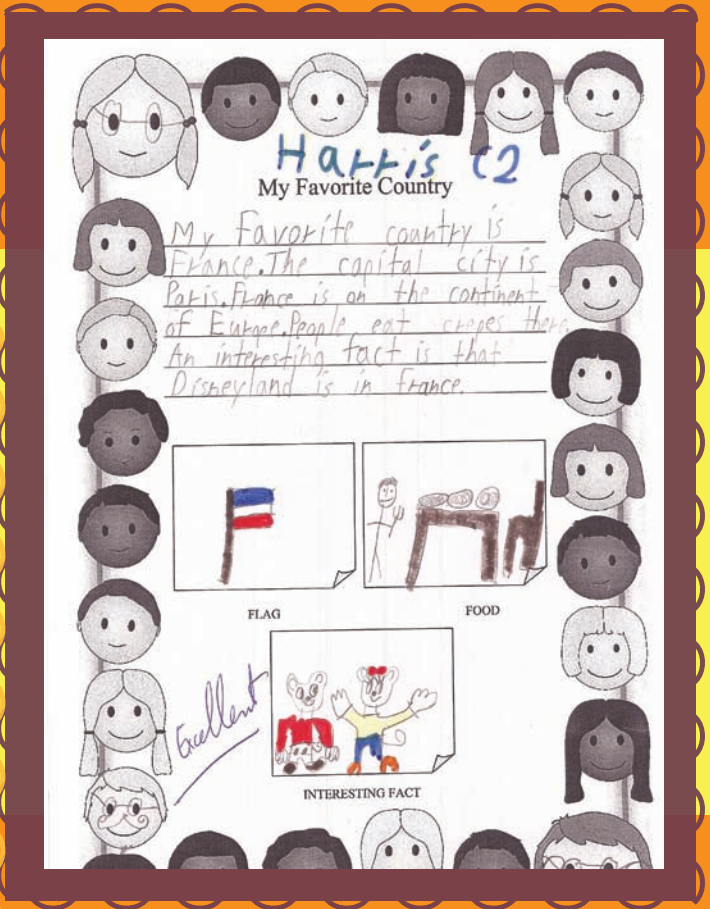 Harris C2
My Favorite Country
My Favorite country is
France. The capital city is
Paris. France is on the continent
of Europe. People eat crepes there.
An interesting fact is that
Disneyland is in france.
FLAG
FOOD
Excellent
INTERESTING FACT